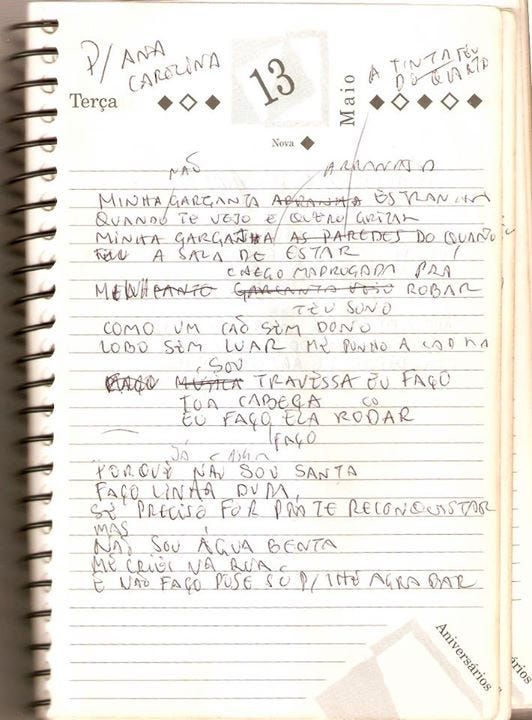 P/ ANA
CAROLINA
A TINTA TEU
DO QUARTO
Terça
13
Maio
Nova
NÃO
ARRANHA A
MINHA GARGANTA ARRANHA ESTRANHA
QUANDO TE VEJO E QUERO GRITAR
MINHA GARGANTA AS PAREDES DO QUARTO
TEU A SALA DE ESTAR
CHEGO MADRUGADA PRA
GARGANTA VEIO ROBAR
TEU SONO
COMO UM CÃO SEM DONO
LOBO SEM LUAR ME PONHO A
SOU
FAÇO MÚSICA TRAVESSA EU FAÇO
TUA CABEÇA
EU FAÇO ELA RODAR
FAÇO
JÁ
PORQUE NÃO SOU SANTA
FAÇO LINHA DURA,
SE PRECISO FOR PRA TE RECONQUISTAR
MAS
NÃO SOU ÁGUA BENTA
ME CRIEI NA RUA,
E NÃO FAÇO POSE SÓ P/ LHE AGRADAR
Aniversários